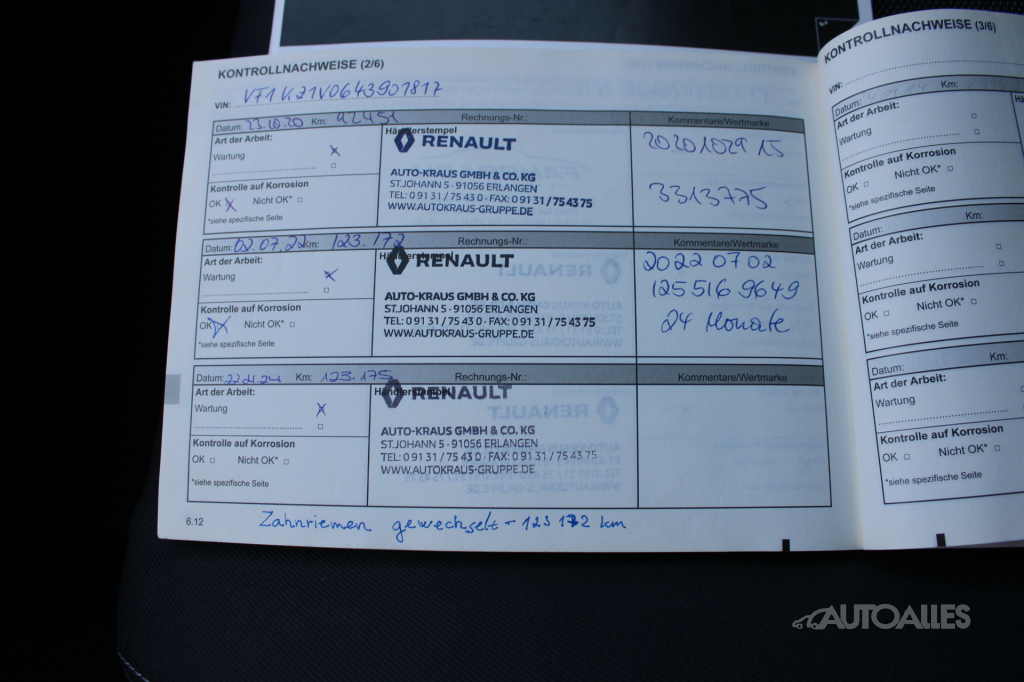 KONTROLLNACHWEISE (2/6)
VIN: VF1KZ1V0643901817
Datum: 23.10.20 Km: 92451 Rechnungs-Nr.: Kommentare/Wertmarke
Art der Arbeit: Händlerstempel
RENAULT
2020102915
Wartung x
AUTO-KRAUS GMBH & CO. KG
Kontrolle auf Korrosion
ST.JOHANN 5 - 91056 ERLANGEN
3313775
OK x Nicht OK*
TEL: 0 91 31 / 75 43 0 · FAX: 0 91 31 / 75 43 75
*siehe spezifische Seite
WWW.AUTOKRAUS-GRUPPE.DE
Datum: 02.07.22 Km: 123.172 Rechnungs-Nr.: Kommentare/Wertmarke
Art der Arbeit: Händlerstempel
RENAULT
2022 07 02
Wartung x
125516 9649
AUTO-KRAUS GMBH & CO. KG
Kontrolle auf Korrosion
ST.JOHANN 5 - 91056 ERLANGEN
24 Monate
OK x Nicht OK*
TEL: 0 91 31 / 75 43 0 · FAX: 0 91 31 / 75 43 75
*siehe spezifische Seite
WWW.AUTOKRAUS-GRUPPE.DE
Datum: Km: 123.175 Rechnungs-Nr.: Kommentare/Wertmarke
Art der Arbeit: Händlerstempel
RENAULT
Wartung x
AUTO-KRAUS GMBH & CO. KG
Kontrolle auf Korrosion
ST.JOHANN 5 - 91056 ERLANGEN
OK Nicht OK*
TEL: 0 91 31 / 75 43 0 · FAX: 0 91 31 / 75 43 75
*siehe spezifische Seite
WWW.AUTOKRAUS-GRUPPE.DE
6.12
Zahnriemen gewechselt - 123 172 km
KONTROLLNACHWEISE (3/6)
VIN:
Datum:
Art der Arbeit:
Wartung
Kontrolle auf Korrosion
OK Nicht OK*
*siehe spezifische Seite
Datum: Km:
Art der Arbeit:
Wartung
Kontrolle auf Korrosion
OK Nicht OK*
*siehe spezifische Seite
Datum: Km:
Art der Arbeit:
Wartung
Kontrolle auf Korrosion
OK Nicht OK*
*siehe spezifische Seite
AUTOALLES